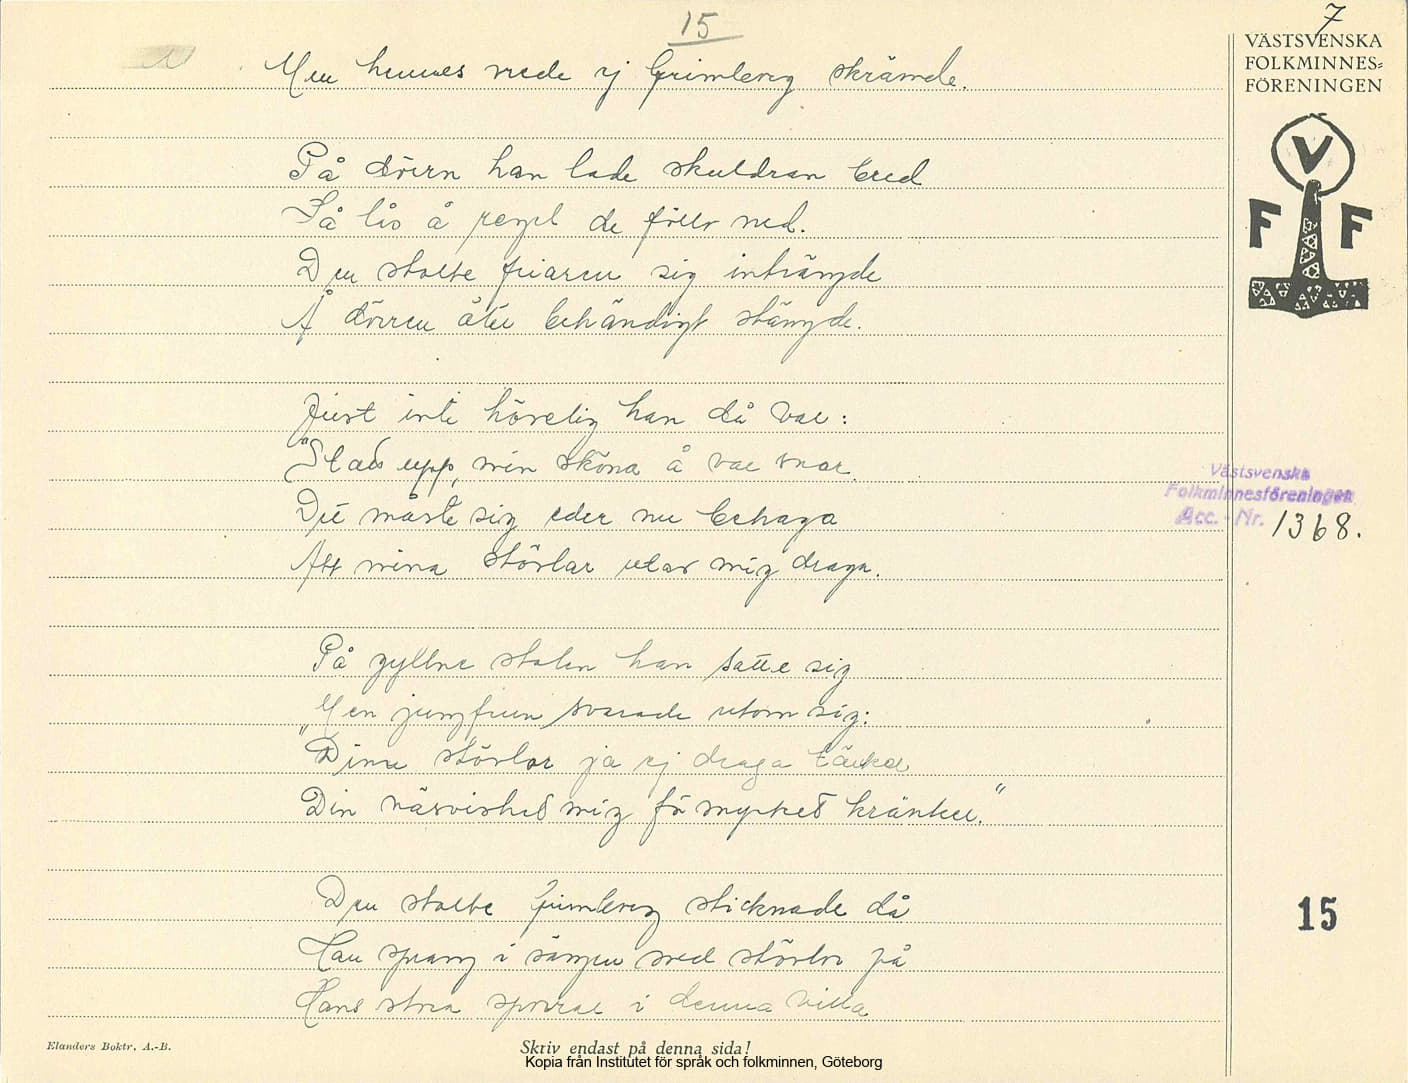 15
7
VÄSTSVENSKA
FOLKMINNES=
FÖRENINGEN
V
F F
Men hennes vrede ej Grimberg skrämde.
På dörrn han lade skuldran bred
Så lås å regel de föllo ned.
Den stolte friaren sig inträngde
Å dörren åter behändigt stängde.
Just inte hövelig han då var:
"Stad upp, min sköna å var snar
Du måste sig eder nu behaga
Att mina stövlar utav mig draga.
På gyllne stolen han satte sig
Men jungfrun svarade utom sig:
"Dina stövlar ja ej draga tänker
Din näsvishet mig få mycket kränker."
Den stolte Grimberg sticknade då
Han sprang i sängen med stövlar på
Hans stora sporrar i denna villa
Västsvenska
Folkminnesföreningen
Acc. - Nr. 1368.
15
Elanders Boktr. A.-B.
Skriv endast på denna sida!
Kopia från Institutet för språk och folkminnen, Göteborg